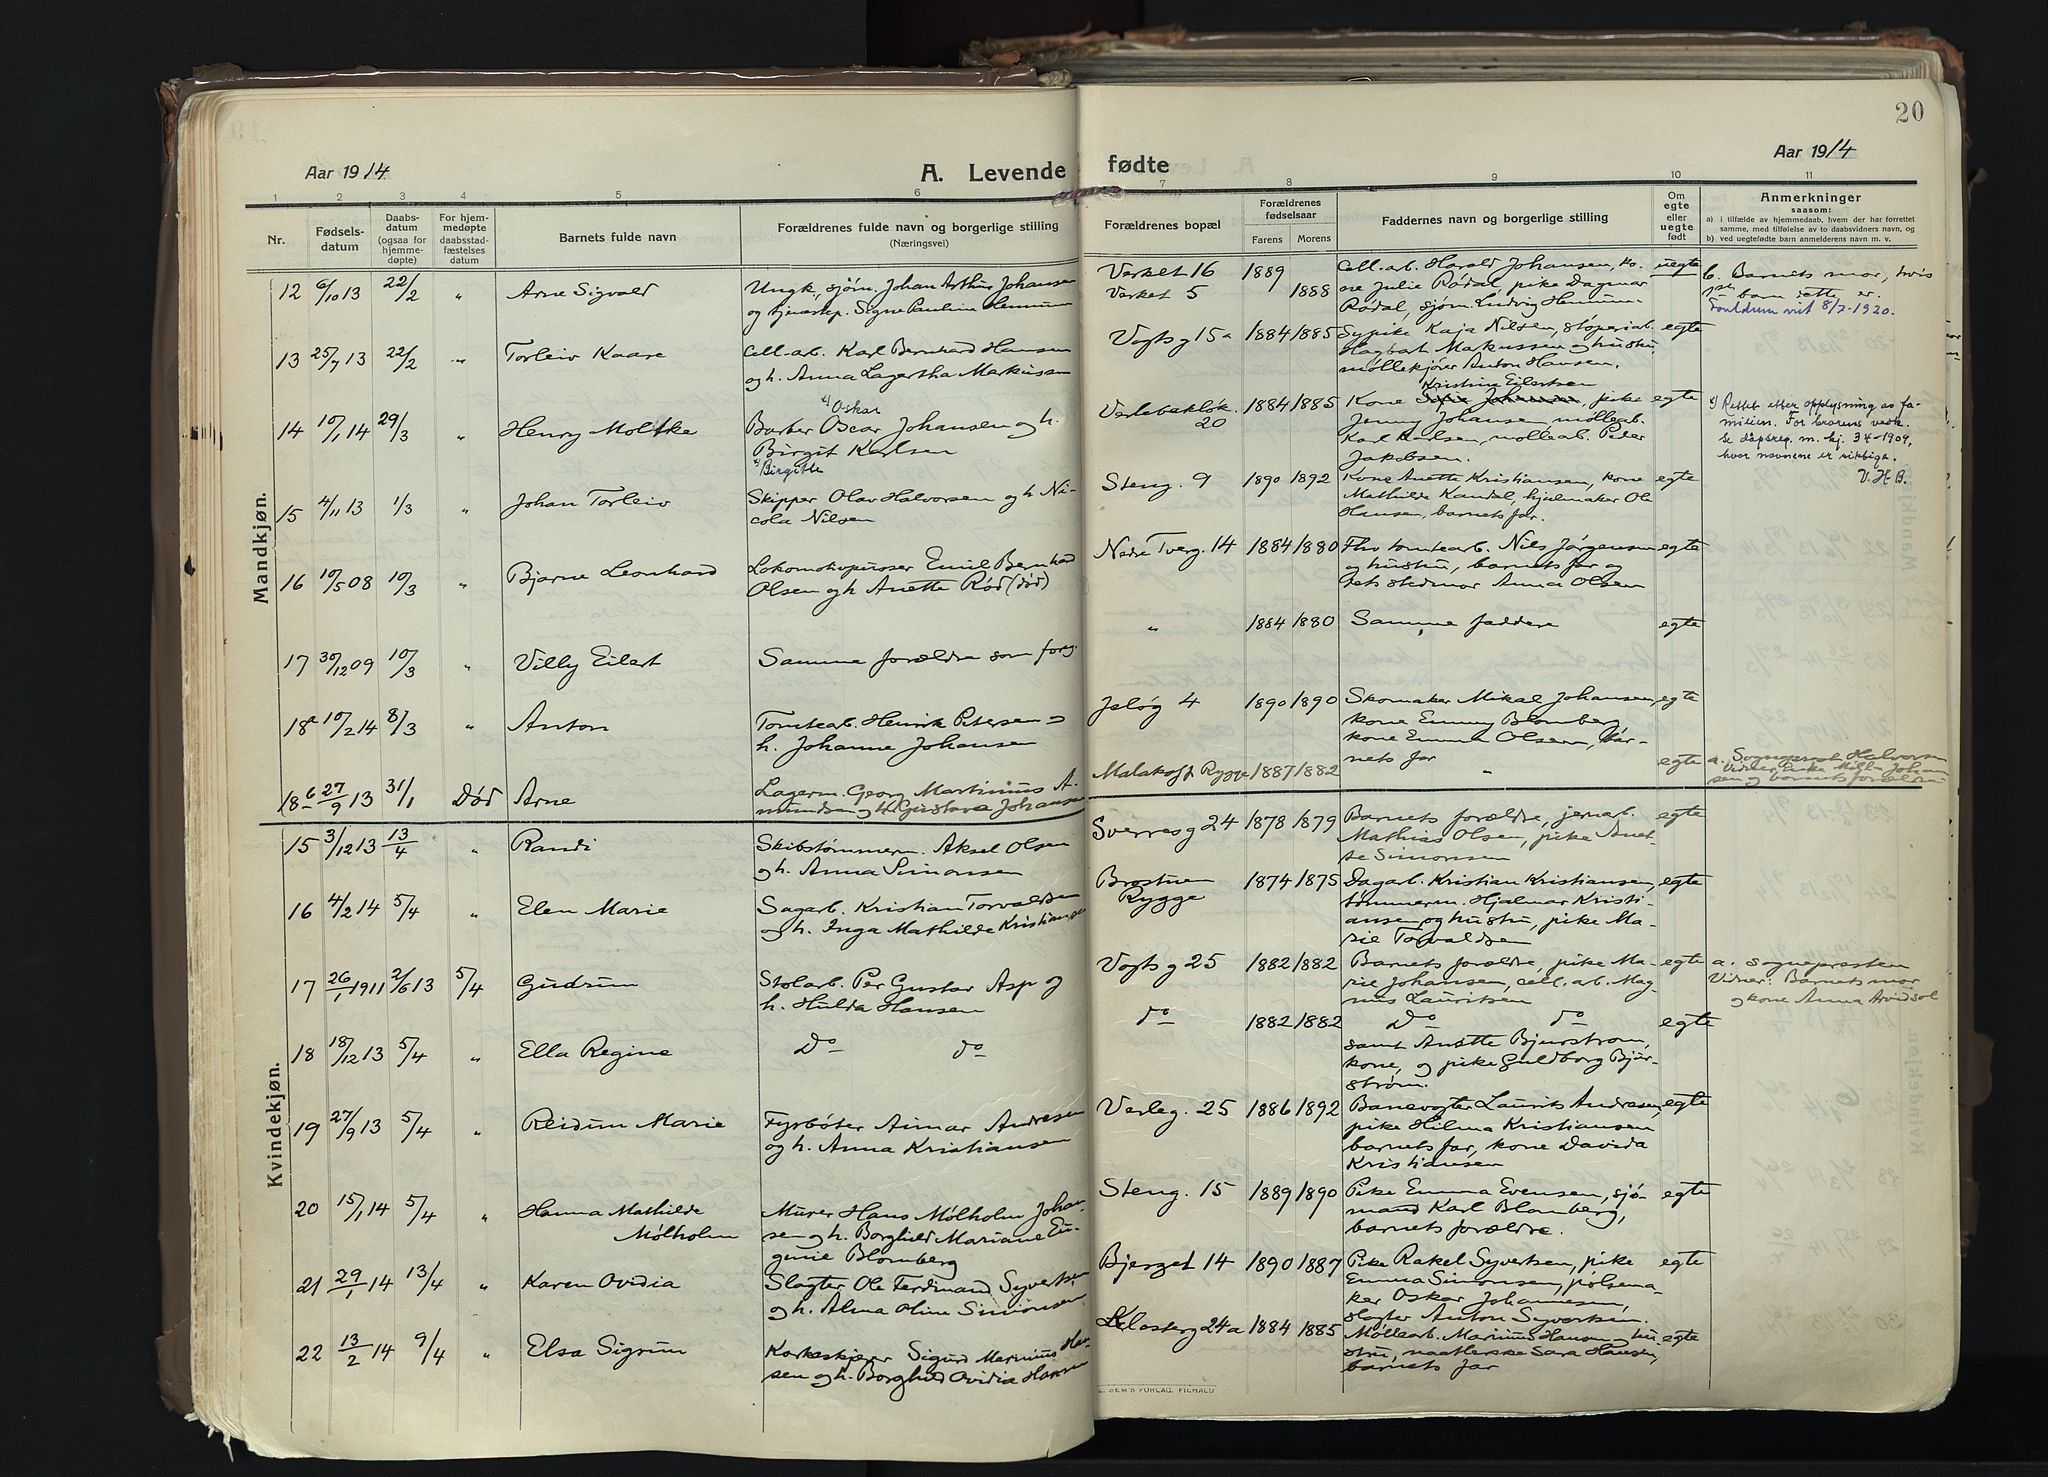 20
Aar 1914
A. Levende
fødte
Aar 1914
1 2 3 4 5 6 7 8 9 10 11
Nr.
Fødsels-
datum
Daabs-
datum
(ogsaa for
hjemme-
døpte)
For hjem-
medøpte
daabsstad-
fæstelses
datum
Barnets fulde navn
Forældrenes fulde navn og borgerlige stilling
(Næringsvei)
Forældrenes bopæl
Forældrenes
fødselsaar
Farens Morens
Faddernes navn og borgerlige stilling
Om
egte
eller
uegte
født
Anmerkninger
saasom:
a) i tilfælde av hjemmedaab, hvem der har forrettet
samme, med tilføielse av to daabsvidners navn, og
b) ved uegtefødte barn anmelderens navn m. v.
Mandkjøn.
12 6/10 13 22/2 " Arne Sigvald
Ungk. sjøm. Johan Arthur Johansen
og tjenestep. Signe Pauline Hemmum
Verket 16 1889
Verket 5 1888
Cell.arb. Harald Johansen, ko-
ne Julie Rødal, pike Dagmar
Rødal, sjøm. Ludvig Hemmum
uegte
b. Barnets mor, hvis
1ste barn dette er.
Foreldrene viet 8/7-1920.
13 25/7 13 22/2 " Torleiv Kaare
Cell.arb. Karl Bernhard Hansen
og h. Anna Lagertha Markussen
Vogts g 15a 1884 1885
Sypike Kaja Nilsen, støperiarb.
Hagbart Markussen og hustru,
møllekjører Anton Hansen.
egte
14 10/1 14 29/3 " Henry Moltke
1) Oskar
Barber Oscar Johansen og h.
Birgit Karlsen
1) Birgitte
Verlebakløk. 1884 1885
20
Kristine Eilertsen
Kone Sofie Johansen, pike
Jenny Johansen, møllearb.
Karl Karlsen, møllearb. Peder
Jakobsen.
egte
1) Rettet etter opplysning av fa-
milien. For brorens vedk.
se dåpsreg. m. kj. 34-1909,
hvor navnene er riktige.
V. H B.
15 4/11 13 1/3 " Johan Torleiv
Skipper Olav Halvorsen og h Ni-
cola Nilsen
Steng. 9 1890 1892
Kone Anette Kristiansen, kone
Mathilde Kandal, hjulmaker Ole
Hansen, barnets far.
egte
16 10/5 08 10/3 " Bjarne Leonhard
Lokomotivpusser Emil Bernhard
Olsen og h Anette Rød (død)
Nedre Tverg. 14 1884 1880
Fhv tomtearb. Nils Jørgensen
og hustru, barnets far og
dets stedmor Anna Olsen
egte
17 30/12 09 10/3 " Villy Eilert
Samme forældre som foreg.
" 1884 1880
Samme faddere
egte
18a 10/2 14 8/3 " Anton
Tomtearb. Henrik Petersen og
h. Johanne Johansen
Jeløg 4 1890 1890
Skomaker Mikal Johansen,
kone Emmy Blomberg,
kone Emma Olsen, bar-
nets far
egte
18b 27/9 13 31/1 Død Arne
Lagerm. Georg Martinius A-
mundsen og h. Gustava Johansen
Malakoff Rygge 1887 1882
"
egte
a. Sogneprest Halvorsen
Vidner: Enke Milla Johan
sen og barnets forældre
Kvindekjøn.
15 3/12 13 13/4 " Randi
Skibstømmerm. Aksel Olsen
og h. Anna Simonsen
Sverresg 24 1878 1879
Barnets forældre, jernarb.
Mathias Olsen, pike Anet-
te Simonsen
egte
16 4/2 14 5/4 " Elen Marie
Sagarb. Kristian Torvaldsen
og h. Inga Mathilde Kristiansen
Brostuen
Rygge
1874 1875
Dagarb. Kristian Kristiansen,
tømmerm. Hjalmar Kristi-
ansen og hustru, pike Ma-
rie Torvaldsen
egte
17 26/1 1911 2/6 13 5/4 Gudrun
Stolarb. Per Gustav Asp og
h. Hulda Hansen
Vogts g 25 1882 1882
Barnets forældre, pike Ma-
rie Johansen, cell. arb. Mag-
nus Lauritsen
egte
a. Sognepresten
Vidner: Barnets mor
og kone Anna Arvidsol
18 18/12 13 5/4 " Ella Regine
Do do
do 1882 1882
Do do
samt Anette Bjurstrøm,
kone, og pike Guldborg Bjur-
strøm.
egte
19 27/9 13 5/4 " Reidun Marie
Fyrbøter Aimar Andresen
og h. Anna Kristiansen
Verleg. 25 1886 1892
Banevogter Laurits Andresen,
pike Hilma Kristiansen
barnets far, kone Davida
Kristiansen
egte
20 15/1 14 5/4 " Hanna Mathilde
Mølholm
Murer Hans Mølholm Johan-
sen og h. Borghild Mariane Eu-
genie Blomberg
Steng. 15 1889 1890
Pike Emma Evensen, sjø-
mand Karl Blomberg,
barnets forældre.
egte
21 29/1 14 13/4 " Karen Ovidia
Slagter Ole Ferdinand Syvertsen
og h. Alma Oline Simonsen
Bjerget 14 1890 1887
Pike Rakel Syvertsen, pike
Emma Simonsen, pølsema-
ker Oskar Johannesen,
slagter Anton Syvertsen.
egte
22 13/2 14 9/4 " Elsa Sigrun
Korkeskjærer Sigurd Marinius Han-
sen og h. Borghild Ovidia Hansen
Klosterg 24a 1884 1885
Møllearb. Marinius Hansen og hu-
stru, naatlerske Sara Hansen,
barnets far
egte
E. SEM'S FORLAG, FR.HALD